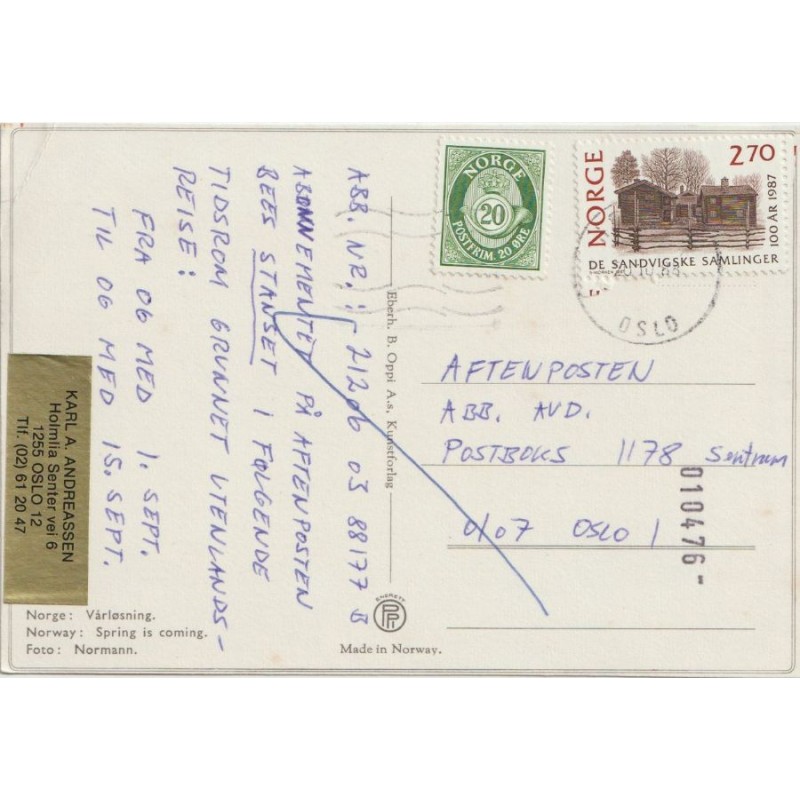 ABB. NR.: 21206 03 88177 B
ABONNEMENTET PÅ AFTENPOSTEN
BEES STANSET I FØLGENDE
TIDSROM GRUNNET UTENLANDS-
REISE:
FRA OG MED 1. SEPT.
TIL OG MED 15. SEPT.
KARL A. ANDREASSEN
Holmlia Senter vei 6
1255 OSLO 12
Tlf. (02) 61 20 47
Norge: Vårløsning.
Norway: Spring is coming.
Foto: Normann.
Eberh. B. Oppi A.s, Kunstforlag
ENERETT
Made in Norway.
NORGE
20
POSTFRIM. 20 ØRE
NORGE
270
100 ÅR 1987
DE SANDVIGSKE SAMLINGER
OSLO
AFTENPOSTEN
ABB. AVD.
POSTBOKS 1178 Sentrum
0107 OSLO 1
010476-